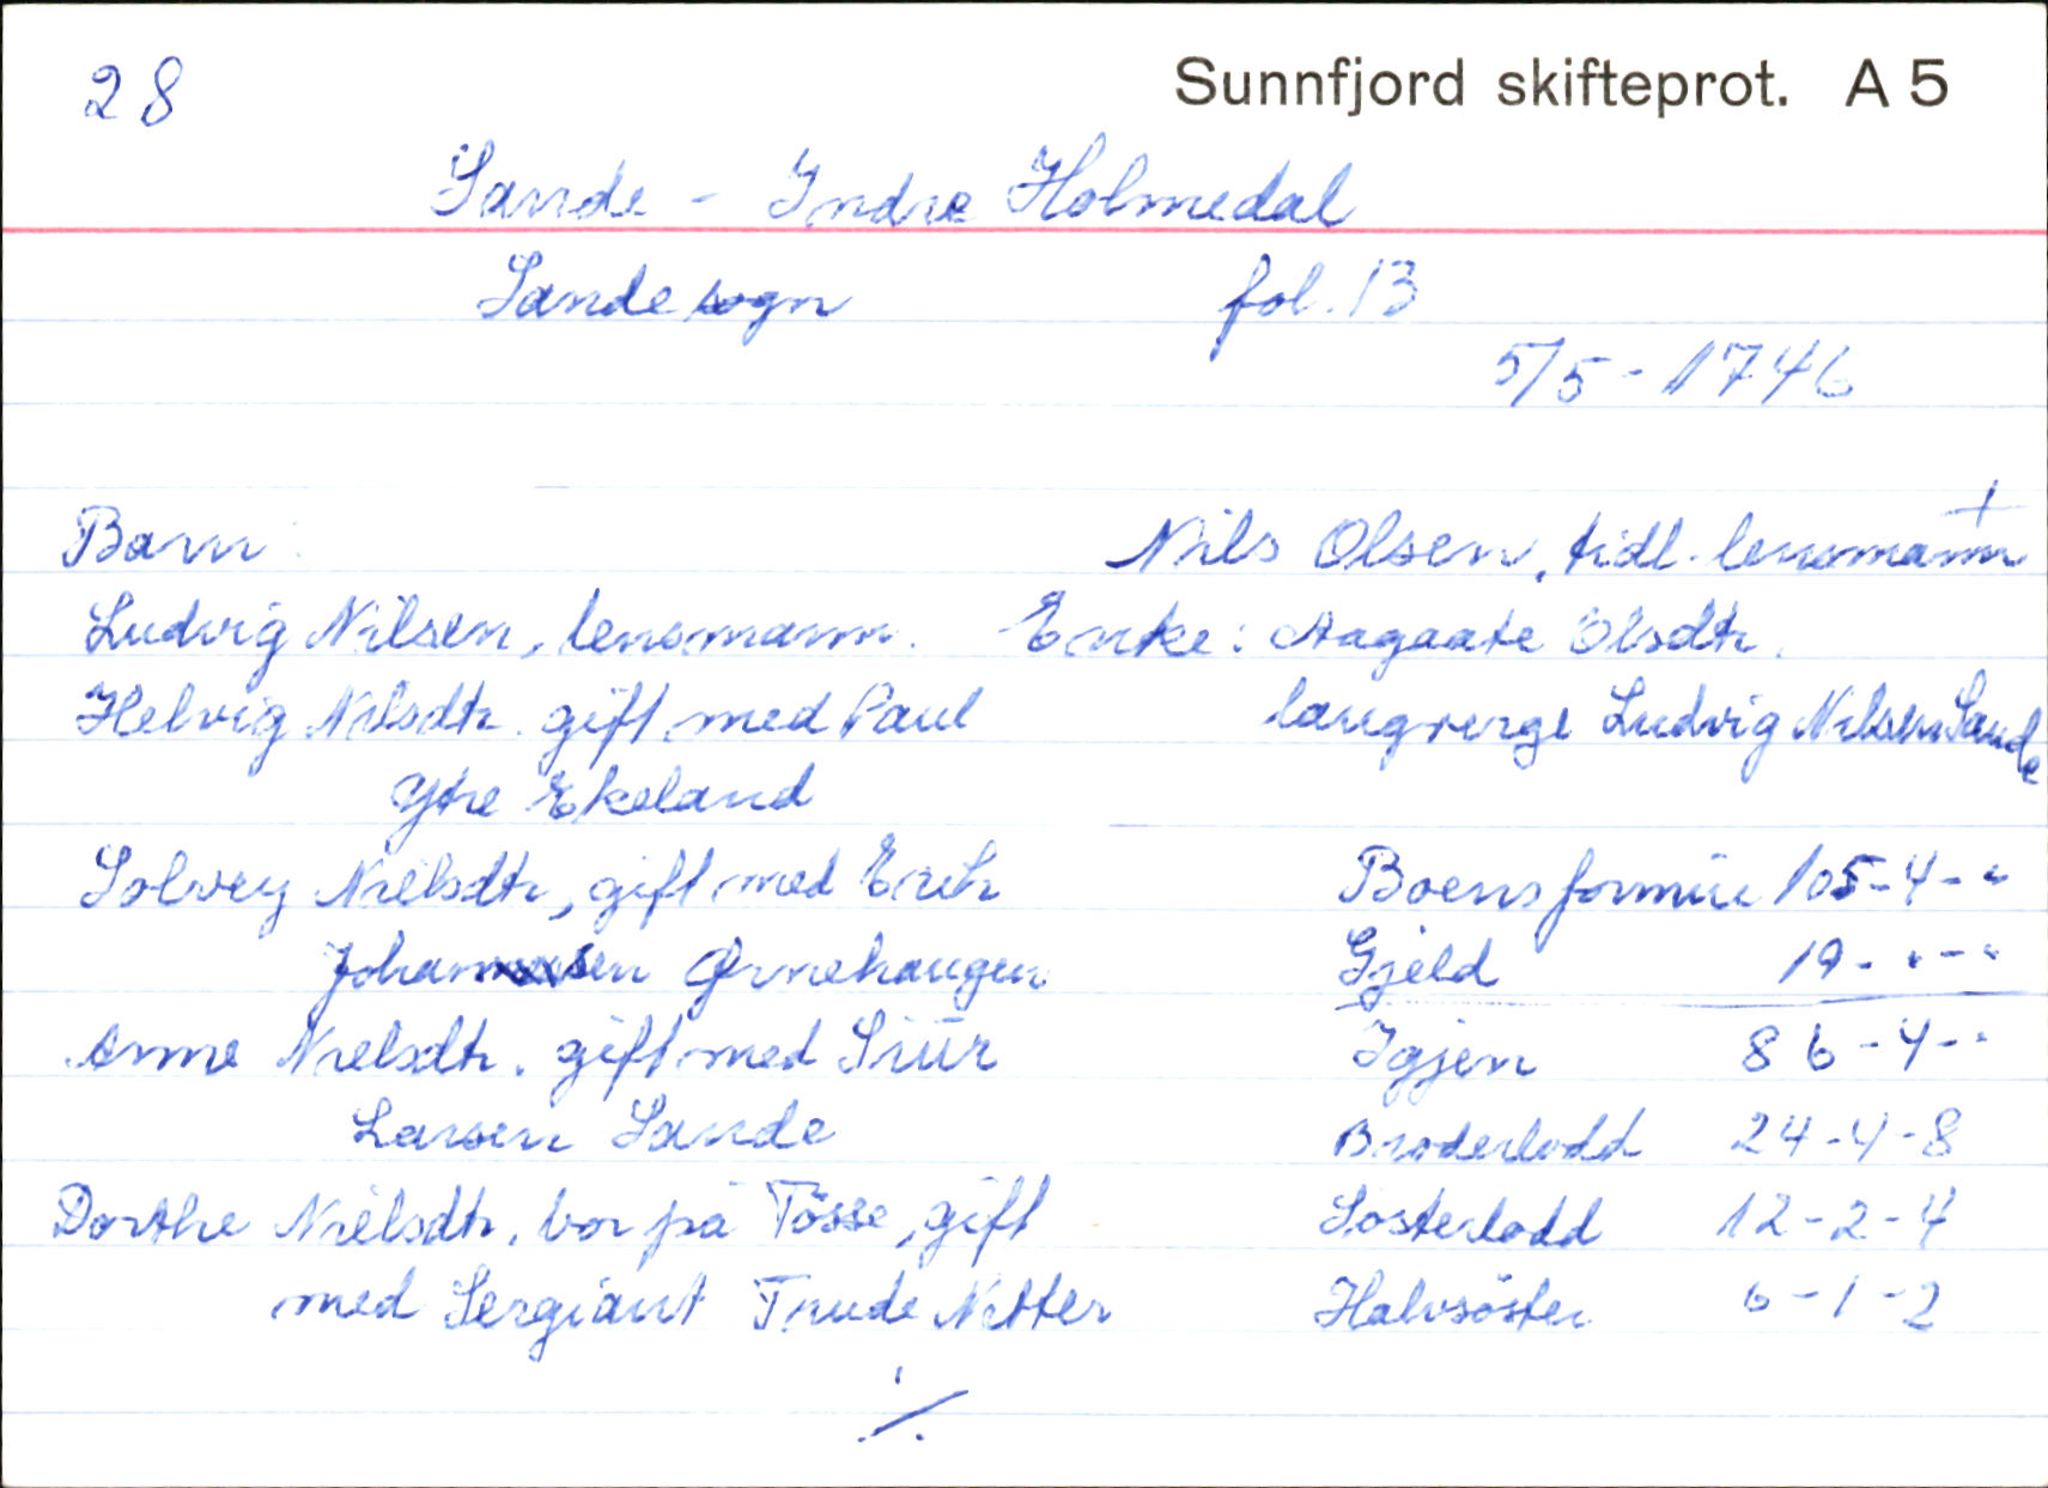 28
Sunnfjord skifteprot. A 5
Sande - Indre Holmedal
Sande sogn fol. 13
5/5 - 1746
Barn: Nils Olsen, tidl. lensmann +
Ludvig Nilsen, lensmann. Enke: Aagaate Olsdtr.
Helvig Nilsdtr. gift med Paul laugverge Ludvig Nilsen Sande
Ytre Ekeland
Solvey Nielsdtr, gift med Erich Boens formüe 105-4-"
Johannesen Ørnehaugen Gjeld 19-"-"
Anne Nielsdtr. gift med Siür Igjen 86-4-"
Larsen Sande Broderlodd 24-4-8
Dorthe Nielsdtr, bor på Tösse, gift Sosterlodd 12-2-4
med Sergiant Trude Nitter Halvsöster 6-1-2
./.